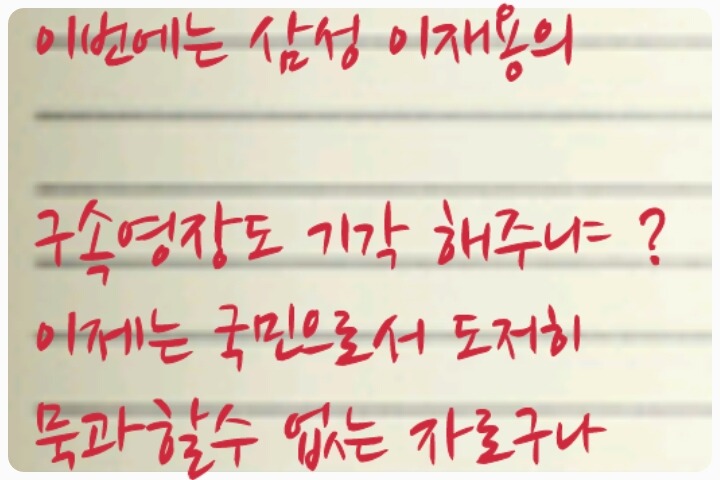 이번에는 삼성 이재용의
구속영장도 기각 해주냐 ?
이제는 국민으로서 도저히
묵과할수 없는 자로구나